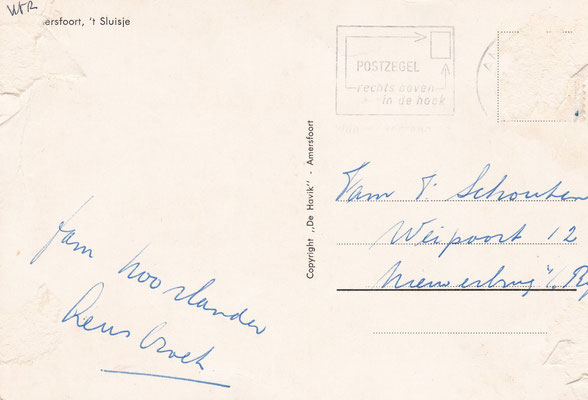 WR
ersfoort, 't Sluisje
POSTZEGEL
rechts boven
in de hoek
Copyright „De Havik" - Amersfoort
Fam J. Schouten
Weipoort 12
Nieuwerbrug a/d Rij
fam Noorlander